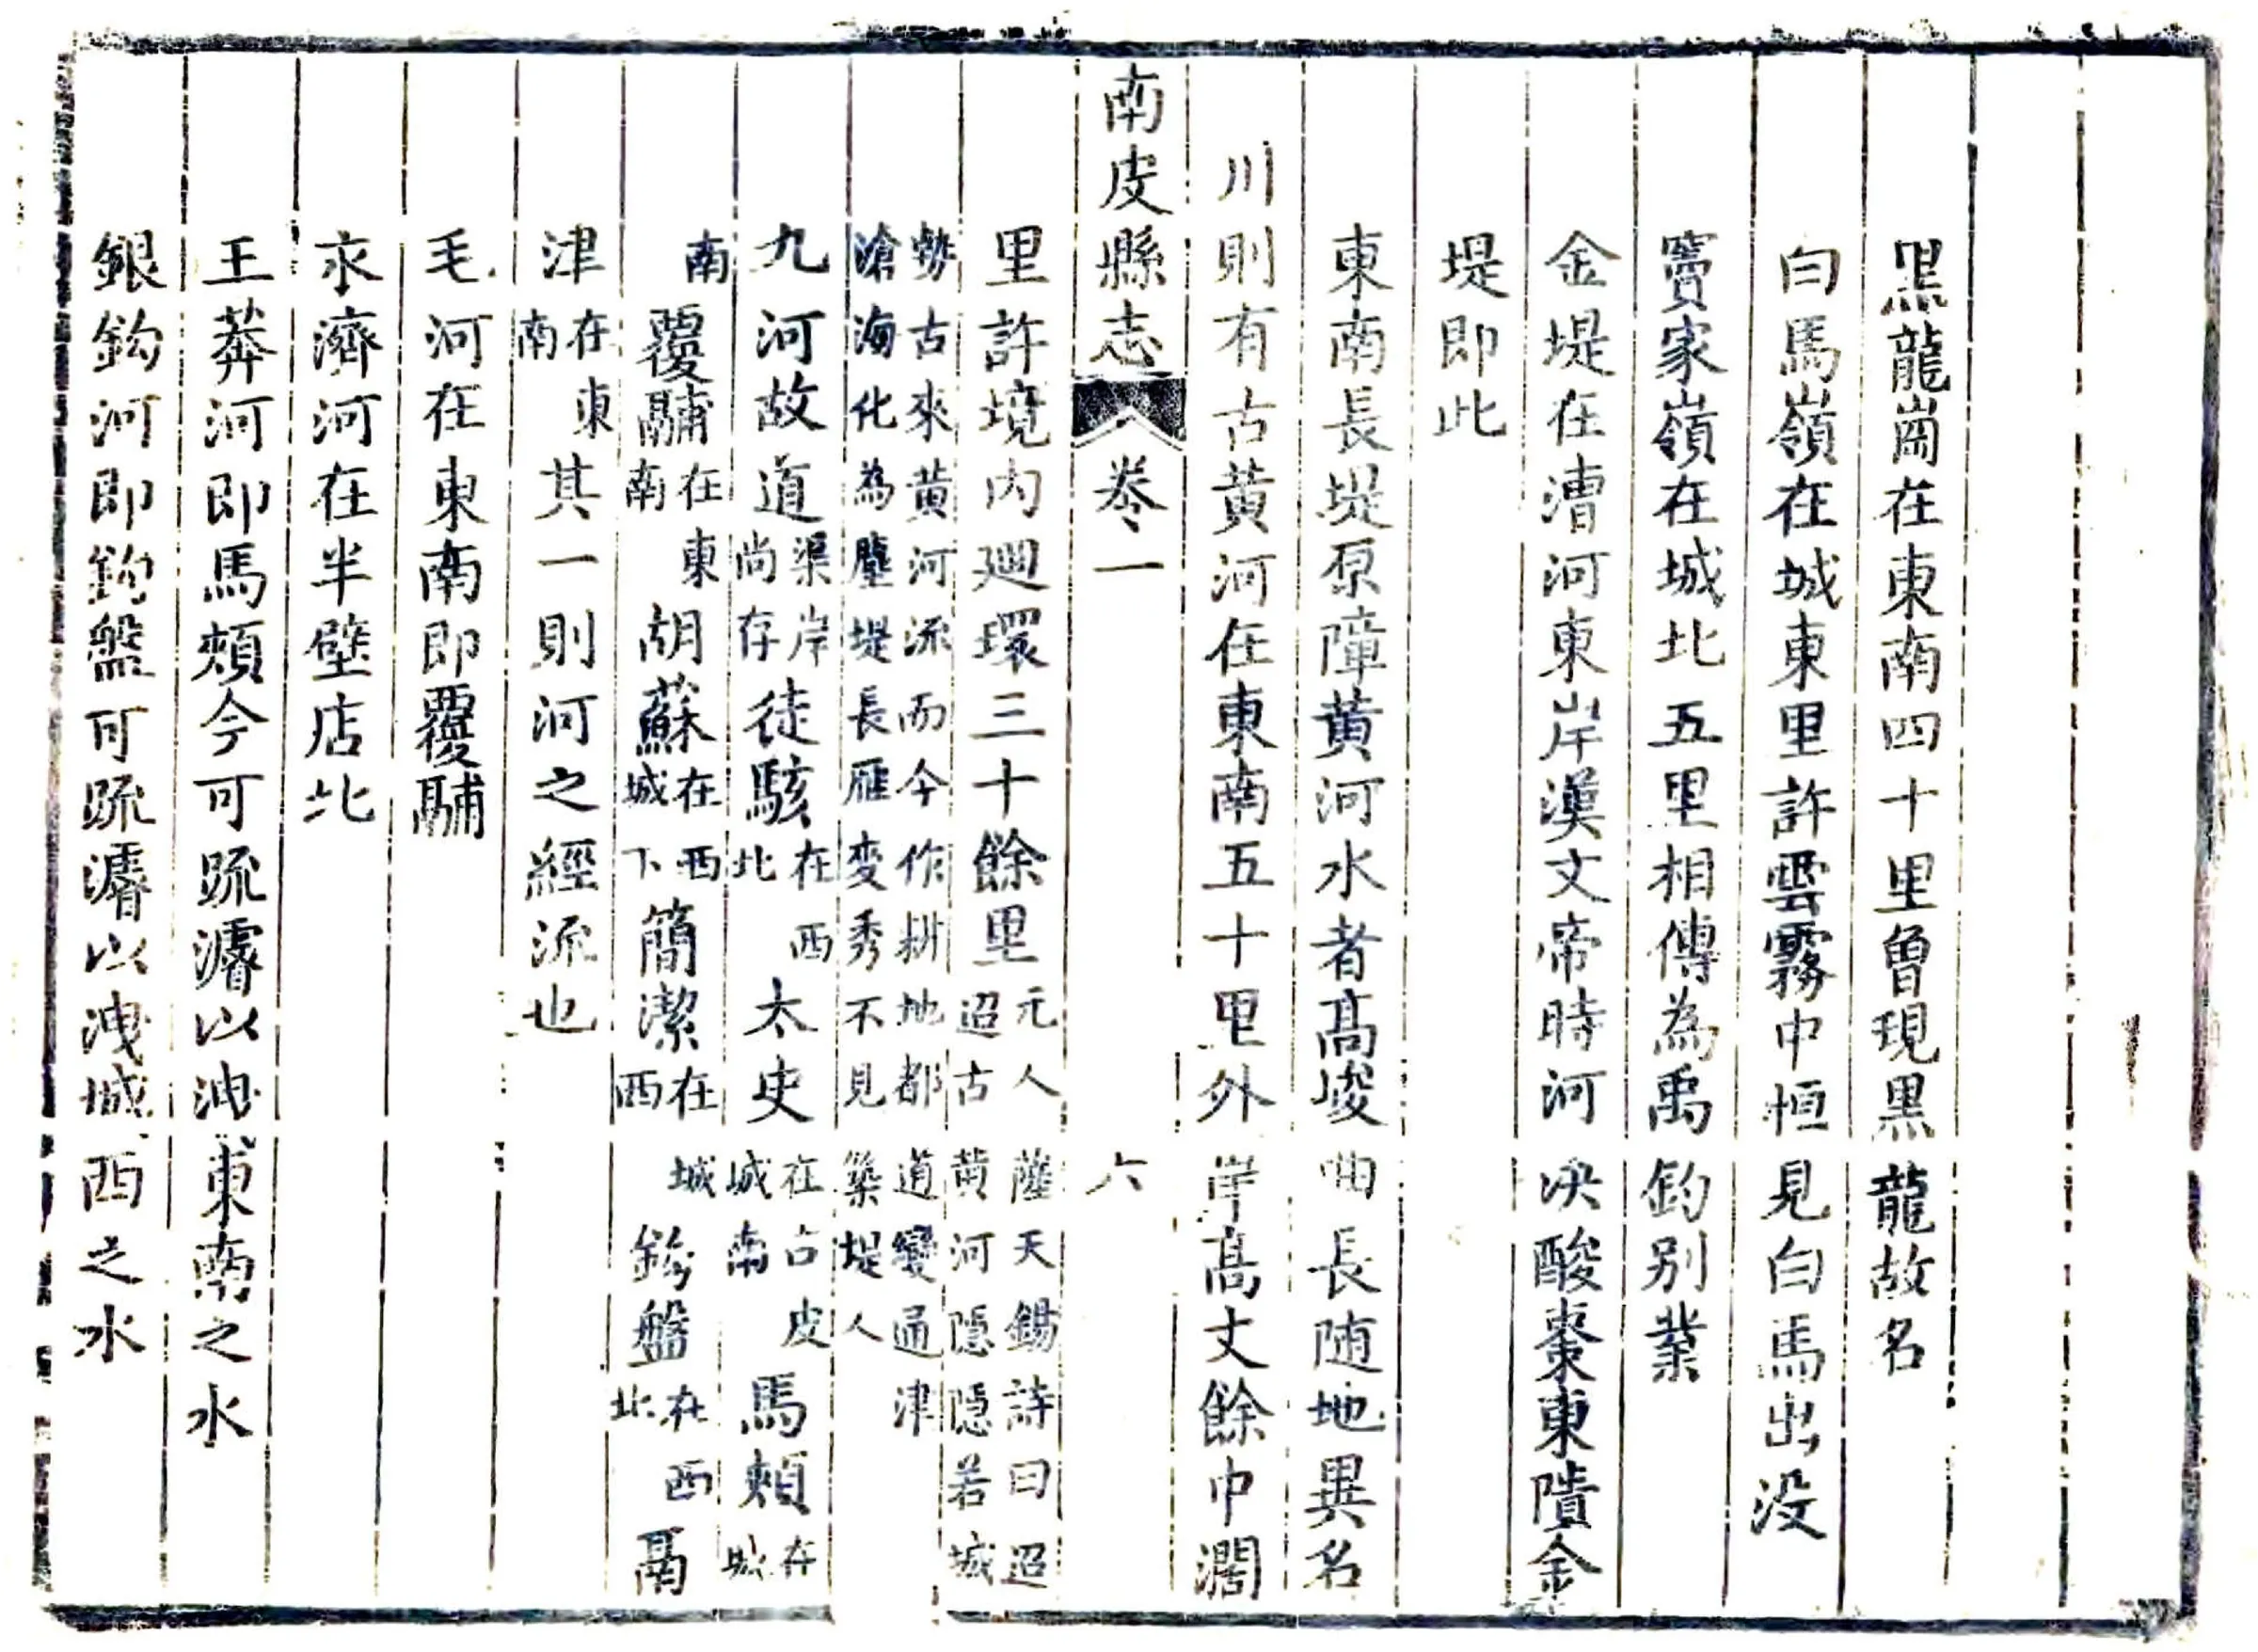 黑龍崗在東南四十里曾現黑龍故名
白馬嶺在城東里許雲霧中恒見白馬出没
竇家嶺在城北五里相傳為禹鈞別業
金堤在漕河東岸漢文帝時河决酸棗東隤金
堤即此
東南長堤原障黄河水者高峻曲長随地異名
川則有古黄河在東南五十里外岸高丈餘中濶
南皮縣志 卷一 六
里許境内廻環三十餘里元人薩天錫詩曰迢迢古黄河隱隱若城
勢古來黄河流而今作耕地都道變通津滄海化為塵堤長雁变秀不見築堤人
九河故道渠岸尚存徒駭在西北太史在古皮城南馬頰在城
東南覆鬴在東南胡蘇在西城下簡潔在城西鉤盤在西北鬲
津在東南其一則河之經流也
毛河在東南即覆鬴
永濟河在半壁店北
王莽河即馬頰今可疏濬以洩東南之水
銀鈎河即鈎盤可疏濬以洩城西之水